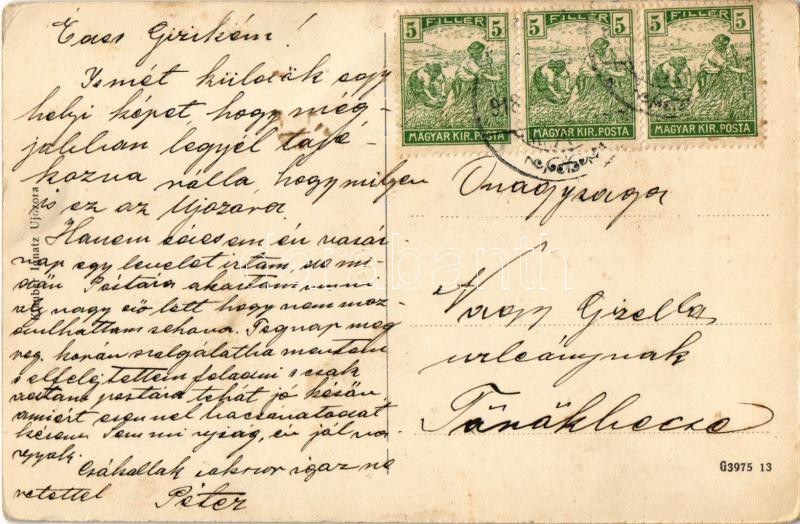 Édes Gizikém!
Ismét küldök egy
helyi képet, hogy még-
jobban legyél tájé-
kozva rólla, hogy milyen
is ez az Ujozora
Hanem édesem én vasár-
nap egy levelet irtam, de mi-
dőn Póstára akartam vinni
oly nagy eső lett hogy nem moz-
dulhattam sehova. Tegnap meg
reg. korán szolgálatba mentem
s elfelejtettem feladni s csak
postára tehát jó későn,
amiért ezennel bocsánatodat
kérem. Semmi ujság, én jól va-
gyok.
Csókollak sokszor igaz sze-
retettel Péter
Ignatz Ujozora
5 FILLÉR 5
MAGYAR KIR. POSTA
5 FILLÉR 5
MAGYAR KIR. POSTA
5 FILLÉR 5
MAGYAR KIR. POSTA
918
Őnagysága
Nagy Gizella
urleánynak
Törökbecse
G3975 13
darabanth